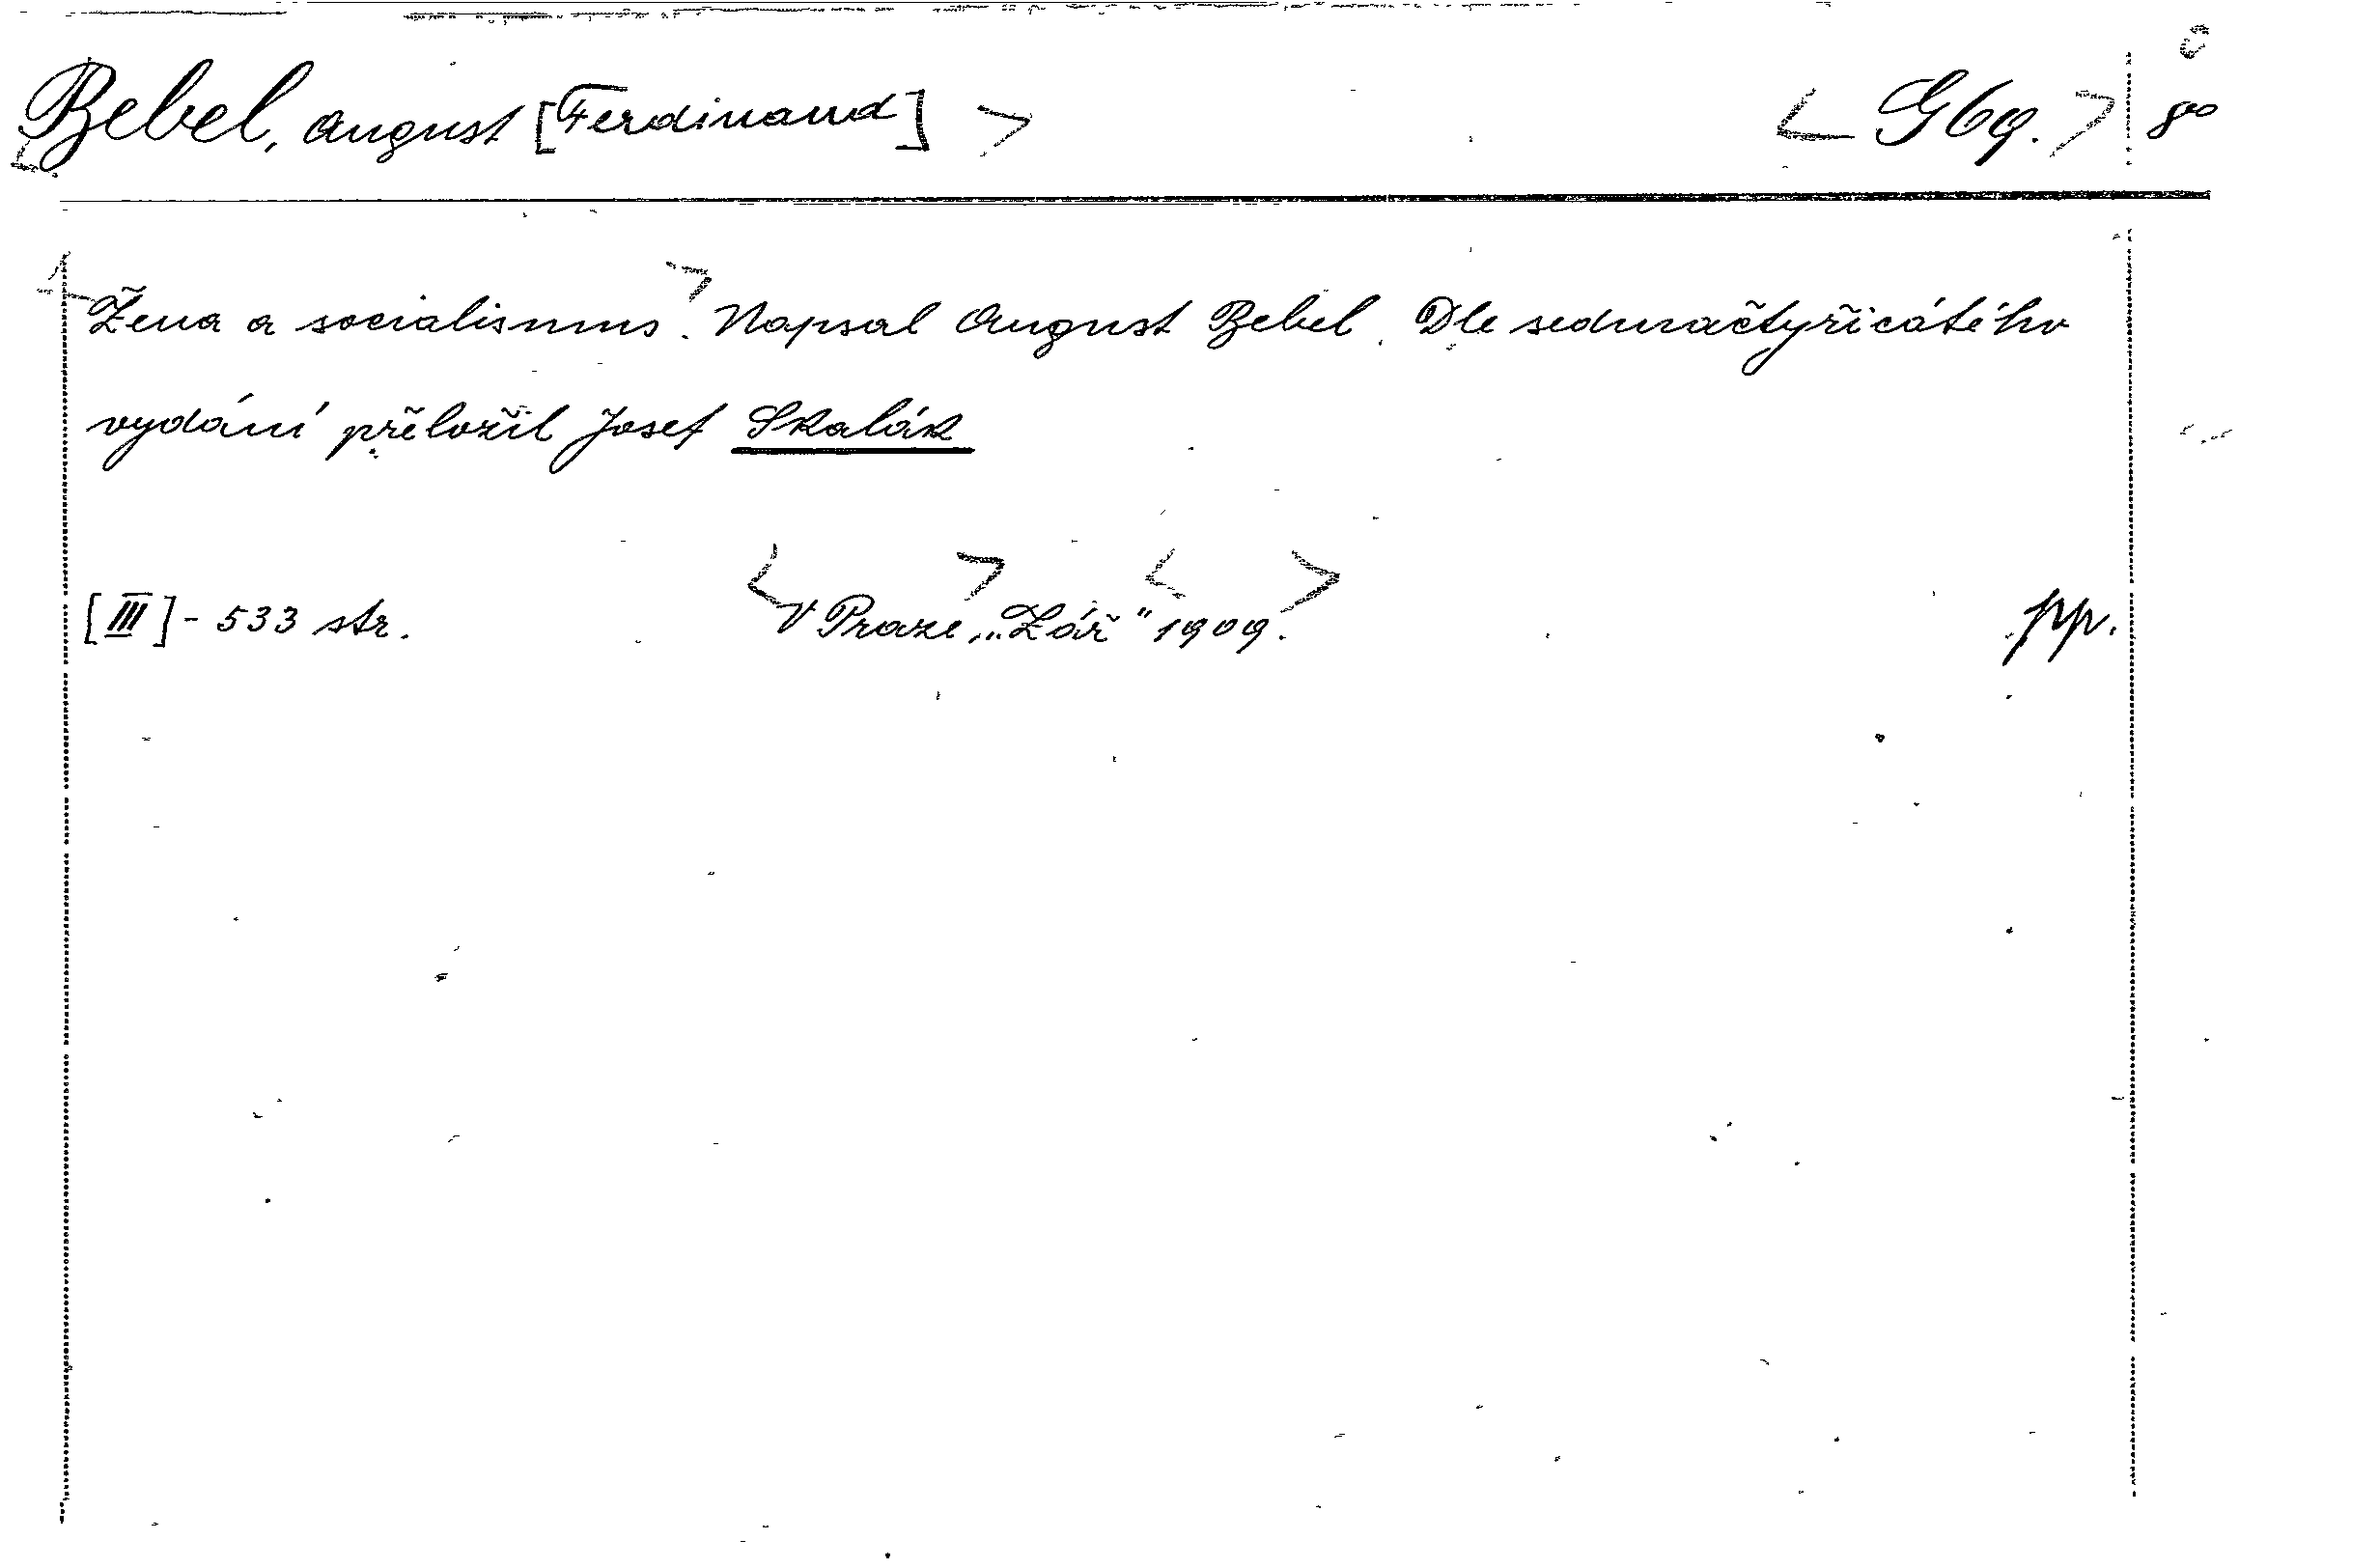 Bebel, August [Ferdinand] > < G 69. > 8°
<Žena a socialismus>. Napsal August Bebel. Dle sedmačtyřicátého
vydání přeložil Josef Skalák
[III] - 533 str. <V Praze>, „Zář" <1909.> pp.